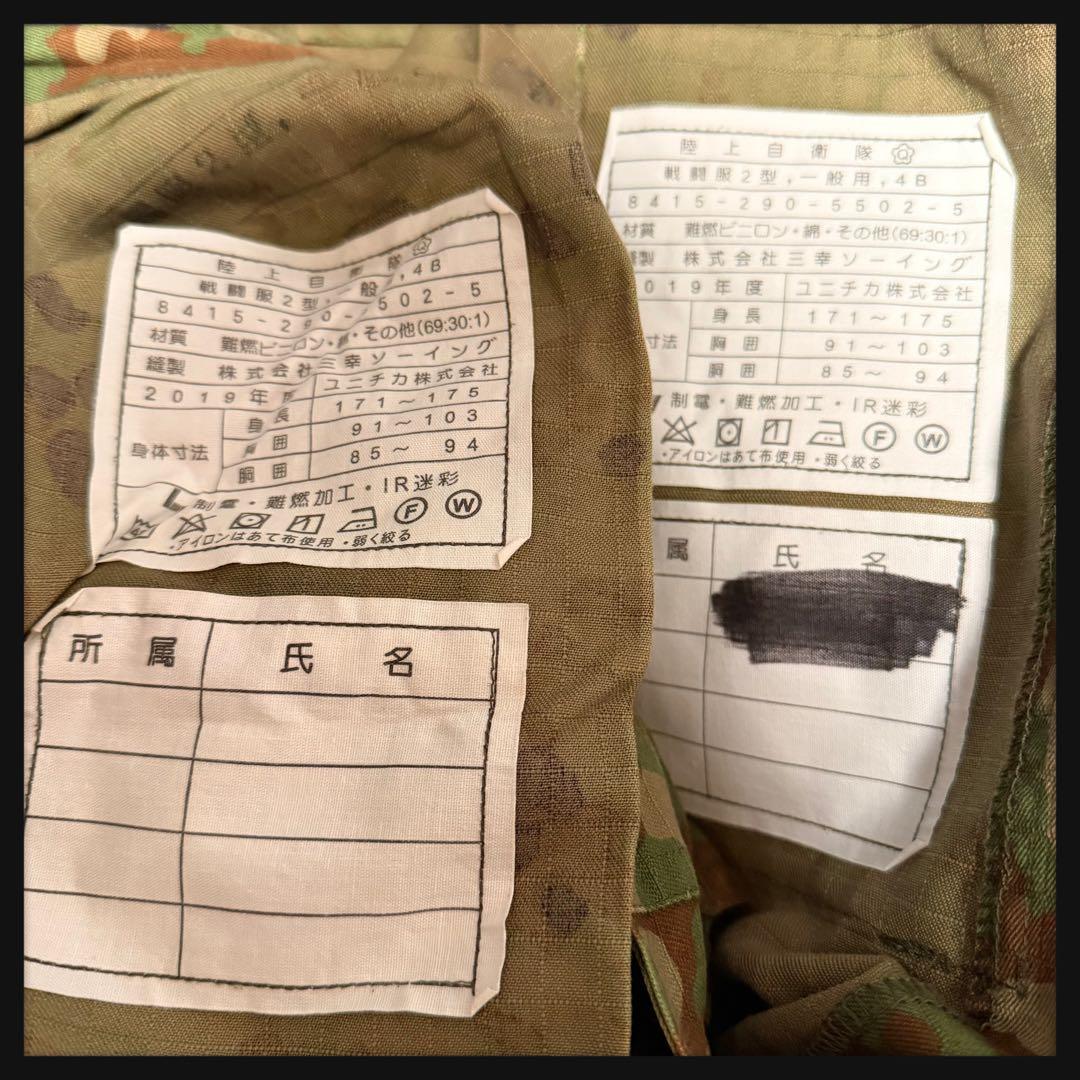 陸上自衛隊
戦闘服2型,一般,4B
8415-290-5502-5
材質 難燃ビニロン・綿・その他(69:30:1)
縫製 株式会社三幸ソーイング
2019年度 ユニチカ株式会社
身体寸法
身長 171～175
胸囲 91～103
胴囲 85～94
制電・難燃加工・IR迷彩
F W
・アイロンはあて布使用 ・弱く絞る
所属 氏名
陸上自衛隊
戦闘服2型,一般用,4B
8415-290-5502-5
材質 難燃ビニロン・綿・その他(69:30:1)
縫製 株式会社三幸ソーイング
2019年度 ユニチカ株式会社
寸法
身長 171～175
胸囲 91～103
胴囲 85～94
制電・難燃加工・IR迷彩
F W
・アイロンはあて布使用 ・弱く絞る
属 氏名